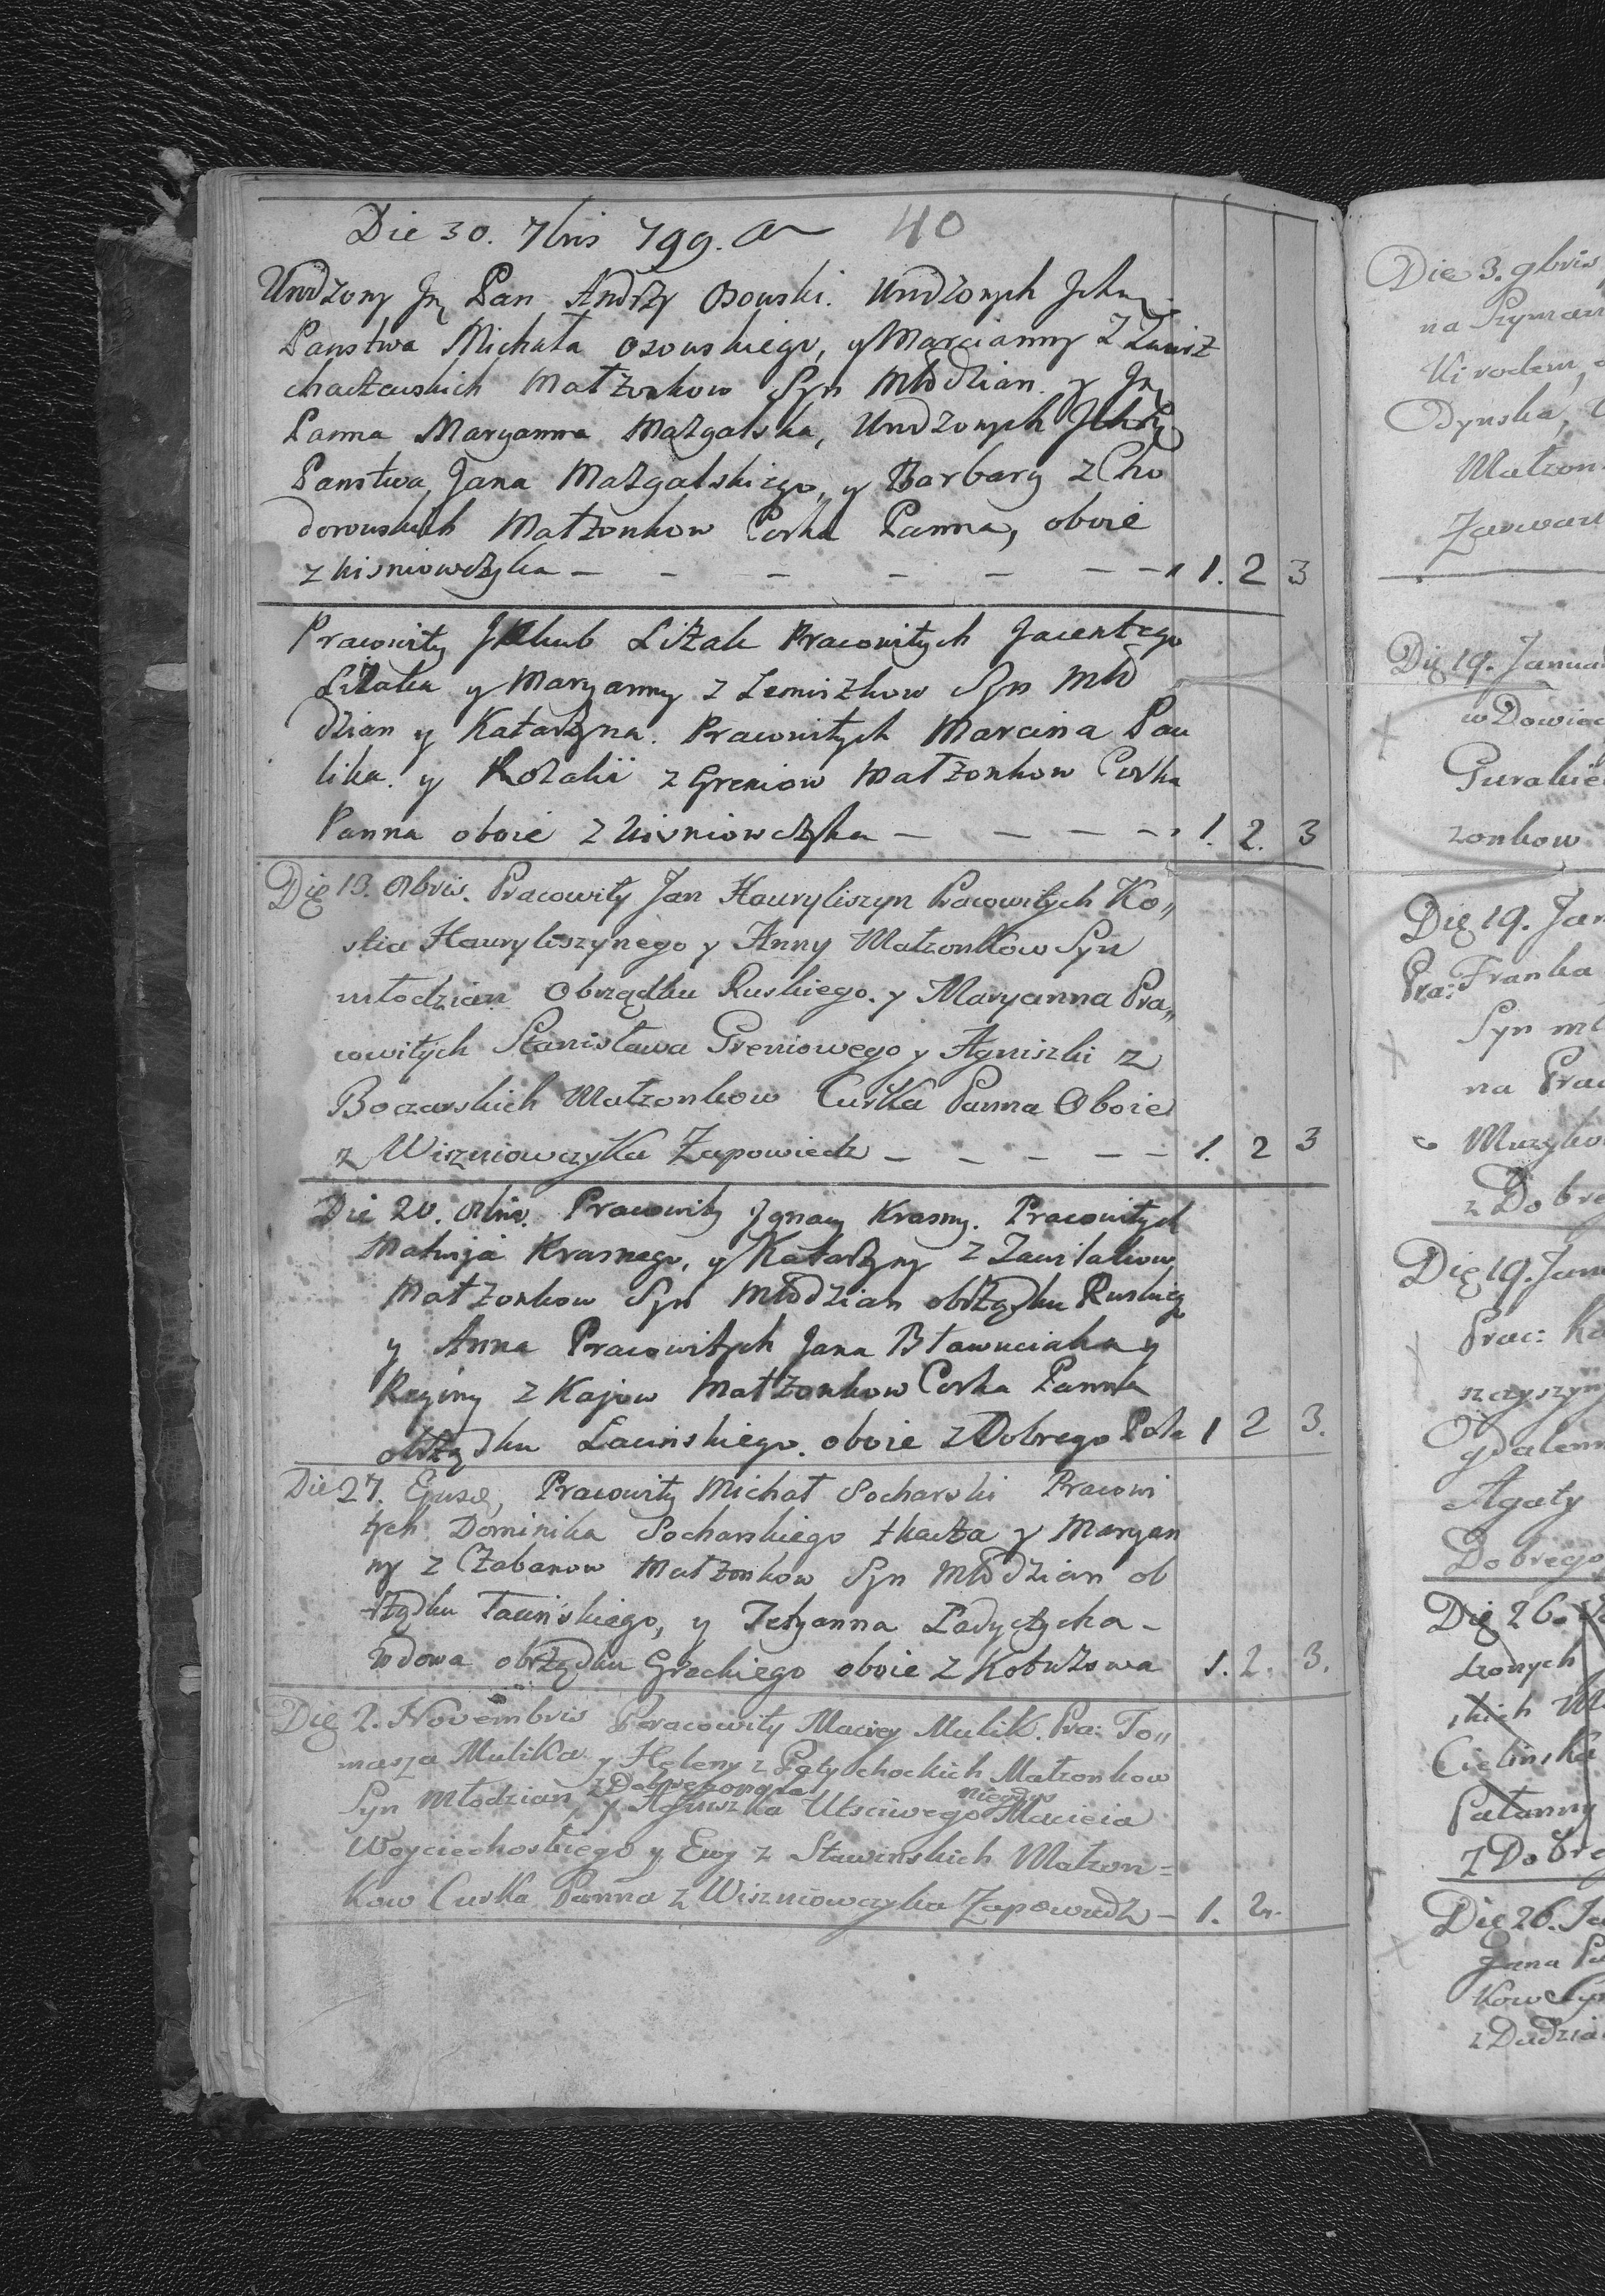 Die 30. 7bris 799. 40
Urodzony Jp Pan Andrzy Osowski. Urodzonych Ich
Panstwa Michała Osowskiego, y Marcianny Z
chaczewskich Małżonkow Syn Młodzian. y Jp
Panna Maryanna Mazgalska, Urodzonych Ich
Panstwa Jana Mazgalskiego, y Barbary z Cho
dorowskich Małżonkow Corka Panna, oboie
z Wisniowczyka — — — — — — — 1. 2 3
Pracowity Jakub Liżak Pracowitych Jacentego
Liżaka y Maryanny z Lemiszkow Syn Mło
dzian y Katarzyna. Pracowitych Marcina Paw
lika. y Rozalii z Greniow Małżonkow Corka
Panna oboie z Wisniowczyka — — — — 1. 2. 3
Die 13. 8bris. Pracowity Jan Hauryliszyn Pracowitych Ko,,
stia Hauryliszynego y Anny Małzonkow Syn
młodzian Obrządku Ruskiego. y Maryanna Pra,,
cowitych Stanisława Greniowego y Agniszki z
Boczarskich Małzonkow Curka Panna Oboie
z Wiszniowczyka Zapowiedz — — — — — 1. 2 3
Die 20. 8bris. Pracowity Jgnacy Krasny. Pracowitych
Matwija Krasnego, y Katarzyny z Zawitakow
Małżonkow Syn Młodzian obrządku Ruskieg
y Anna Pracowitych Jana Bławuciaka y
Reginy z Kajow Małżonkow Corka Panna
obrządku Łacinskiego. oboie z Dobrego Pola 1 2 3.
Die 27. Ejusd, Pracowity Michał Socharski Pracowi
tych Dominika Socharskiego tkacza y Maryan
ny z Czabanow Małżonkow Syn Młodzian ob
rządku łacińskiego, y Tetyanna Ladyczycka –
Wdowa obrządku Grackiego oboie z Kobuzowa 1. 2. 3.
Die 2. Novembris Peracowity Maciey Mulik. Pra: To,,
masza Mulika y Heleny z Patychockich Małzonkow
z Dobregopola niegdys
Syn Młodzian y Agniszka Utsciwego Macieia
Woyciechoskiego y Ewy z Sławinskich Małzon=
kow Curka Panna z Wiszniowczyka Zapowiedz — 1. 2.
Die 3. 9bris
na Szyman
ki rodem
Dynska,
Małzon
Die 19. Janua
w Dowiad
Gurakie
zonkow
Die 19. Jan
Pra: Franka
Syn mł
na Prac
Muzyko
z Dobre
Die 19. Janu
Prac:
szczyszyn
gdalen
Agaty
Dobrego
Die 26.
dzonych
skich
Cielinska
Z Dobre
Die 26. Ja
Jana
kow Sy
z Dudzia